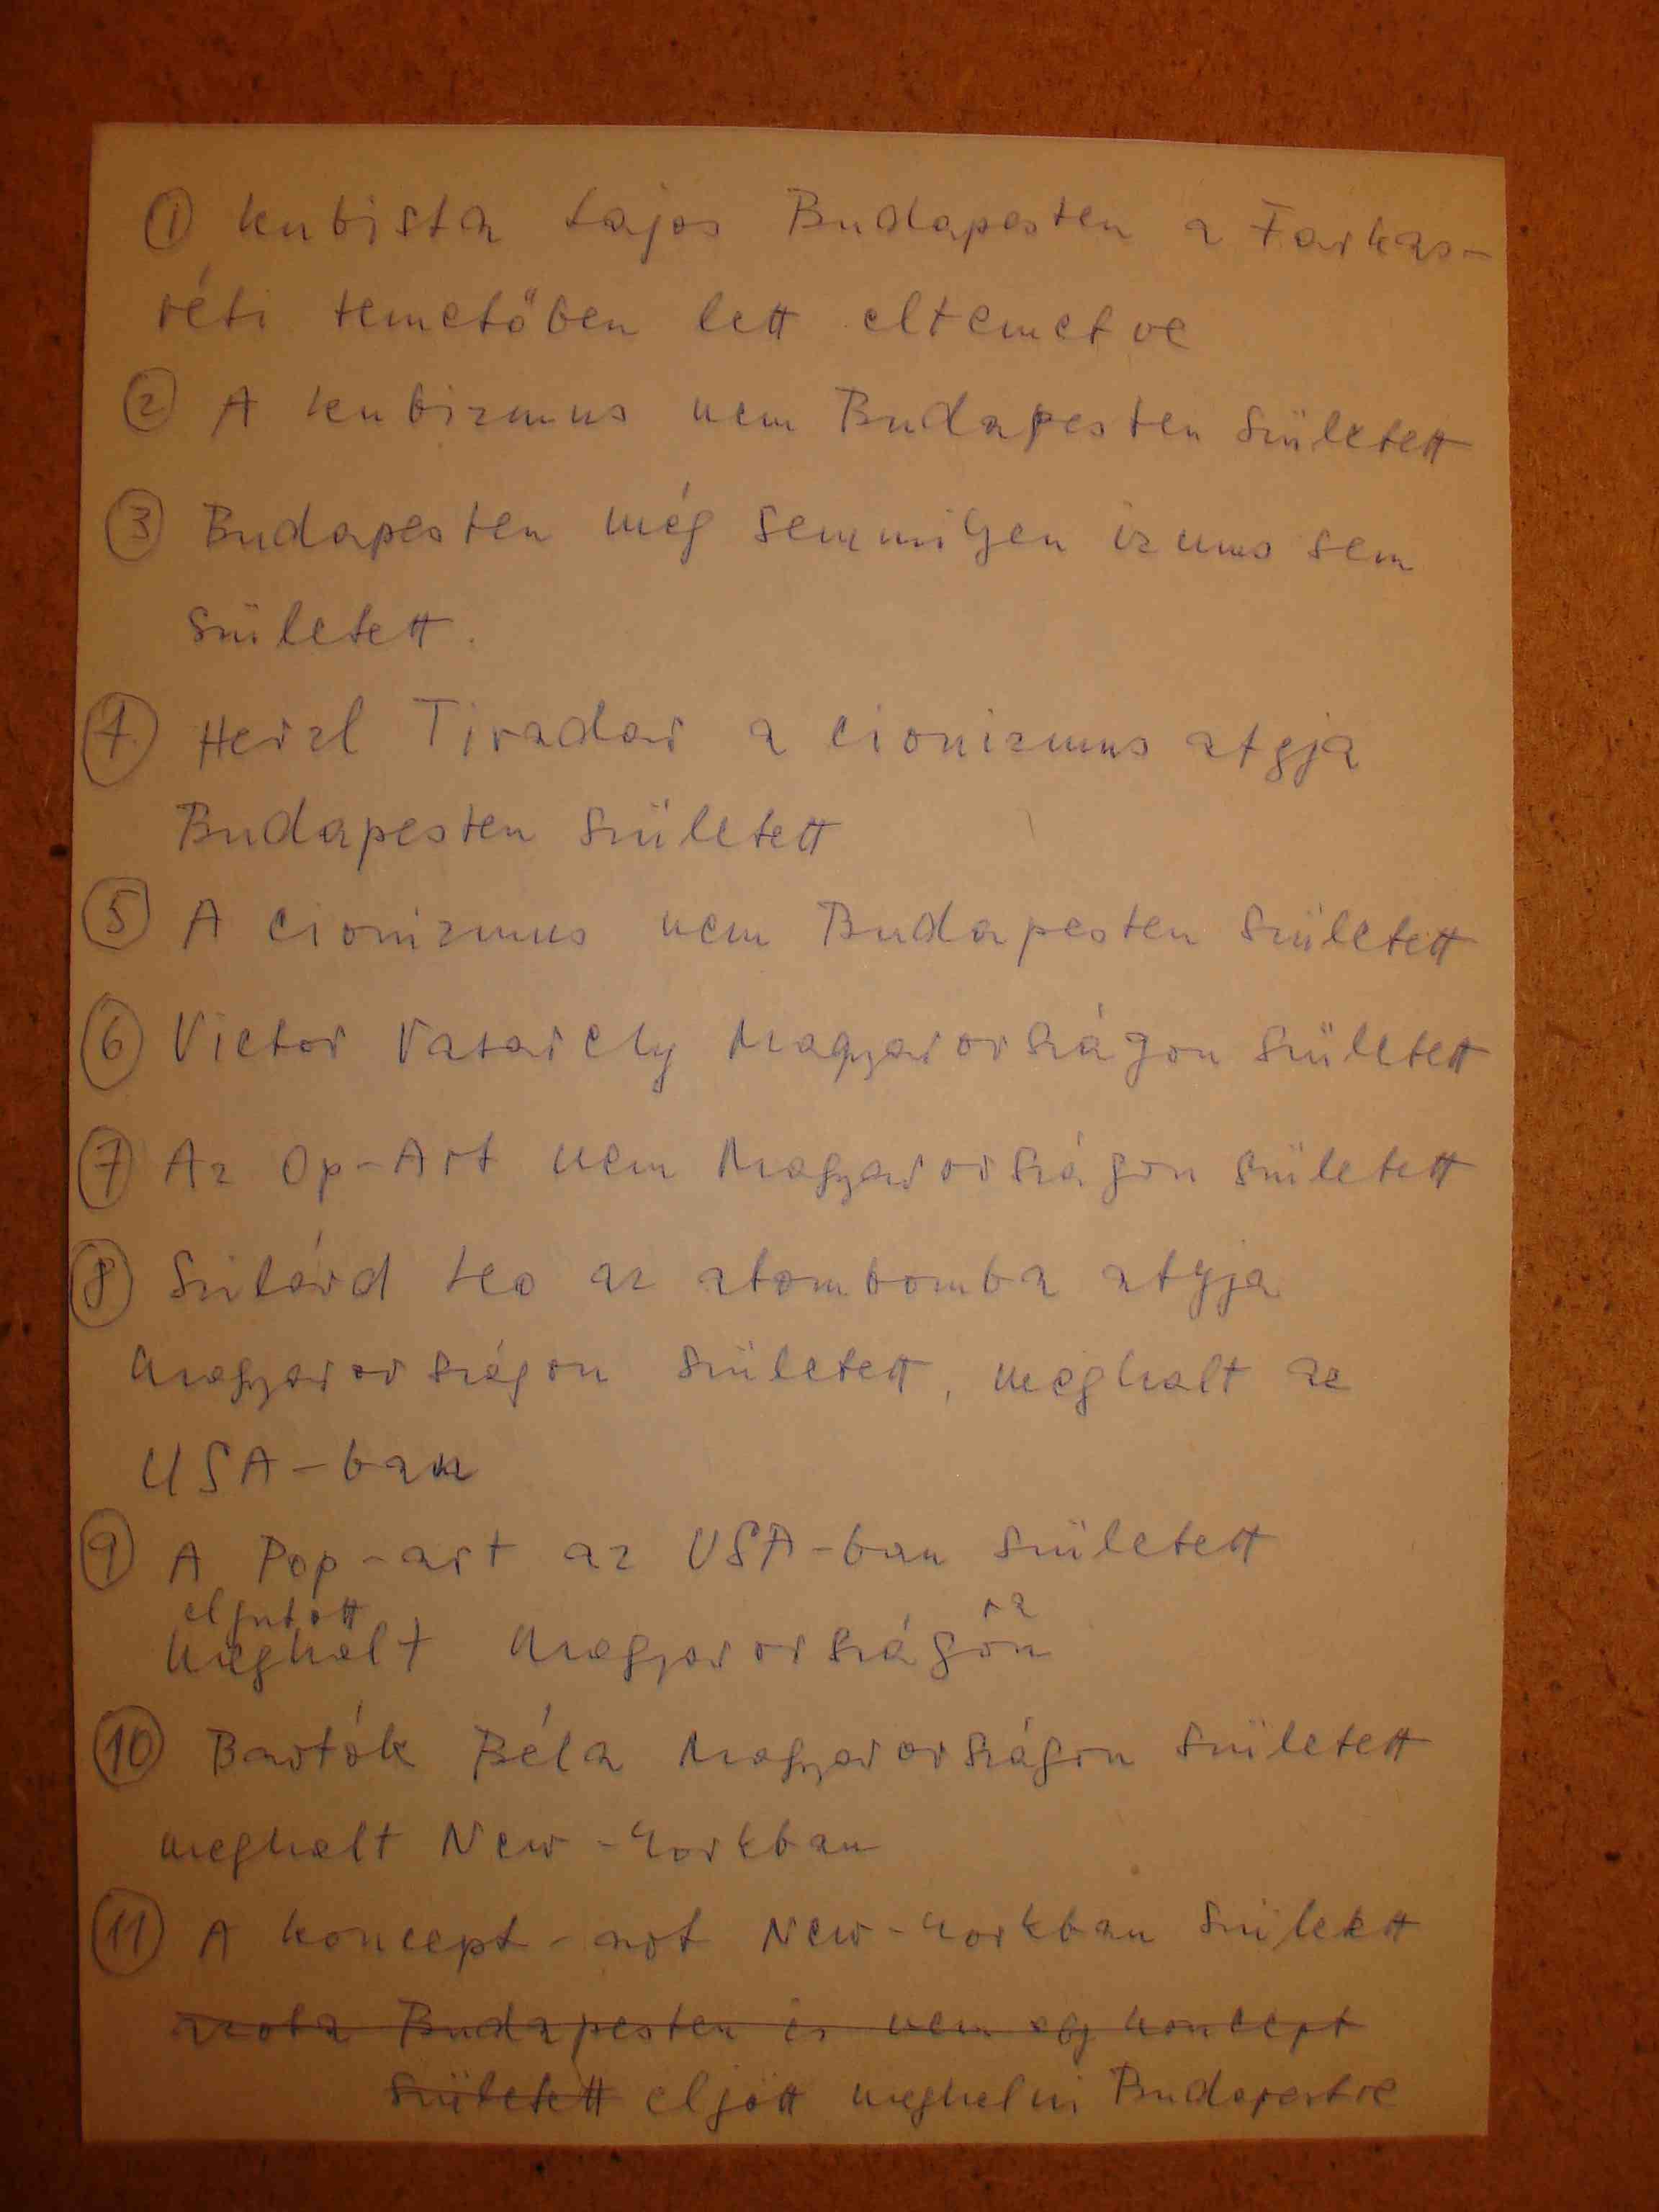 ① Kubista Lajos Budapesten a Farkas-
réti temetőben lett eltemetve
② A kubizmus nem Budapesten született
③ Budapesten még semmilyen izmus sem
született.
④ Herzl Tivadar a cionizmus atyja
Budapesten született
⑤ A cionizmus nem Budapesten született
⑥ Victor Vasarely Magyarországon született
⑦ Az Op-Art nem Magyarországon született
⑧ Szilárd Leo az atombomba atyja
Magyarországon született, meghalt az
USA-ban
⑨ A Pop-art az USA-ban született
eljutott ra
meghalt Magyarországon
⑩ Bartók Béla Magyarországon született
meghalt New-Yorkban
⑪ A koncept-art New-Yorkban született
azota Budapesten is nem egy koncept
született eljött meghalni Budapestre